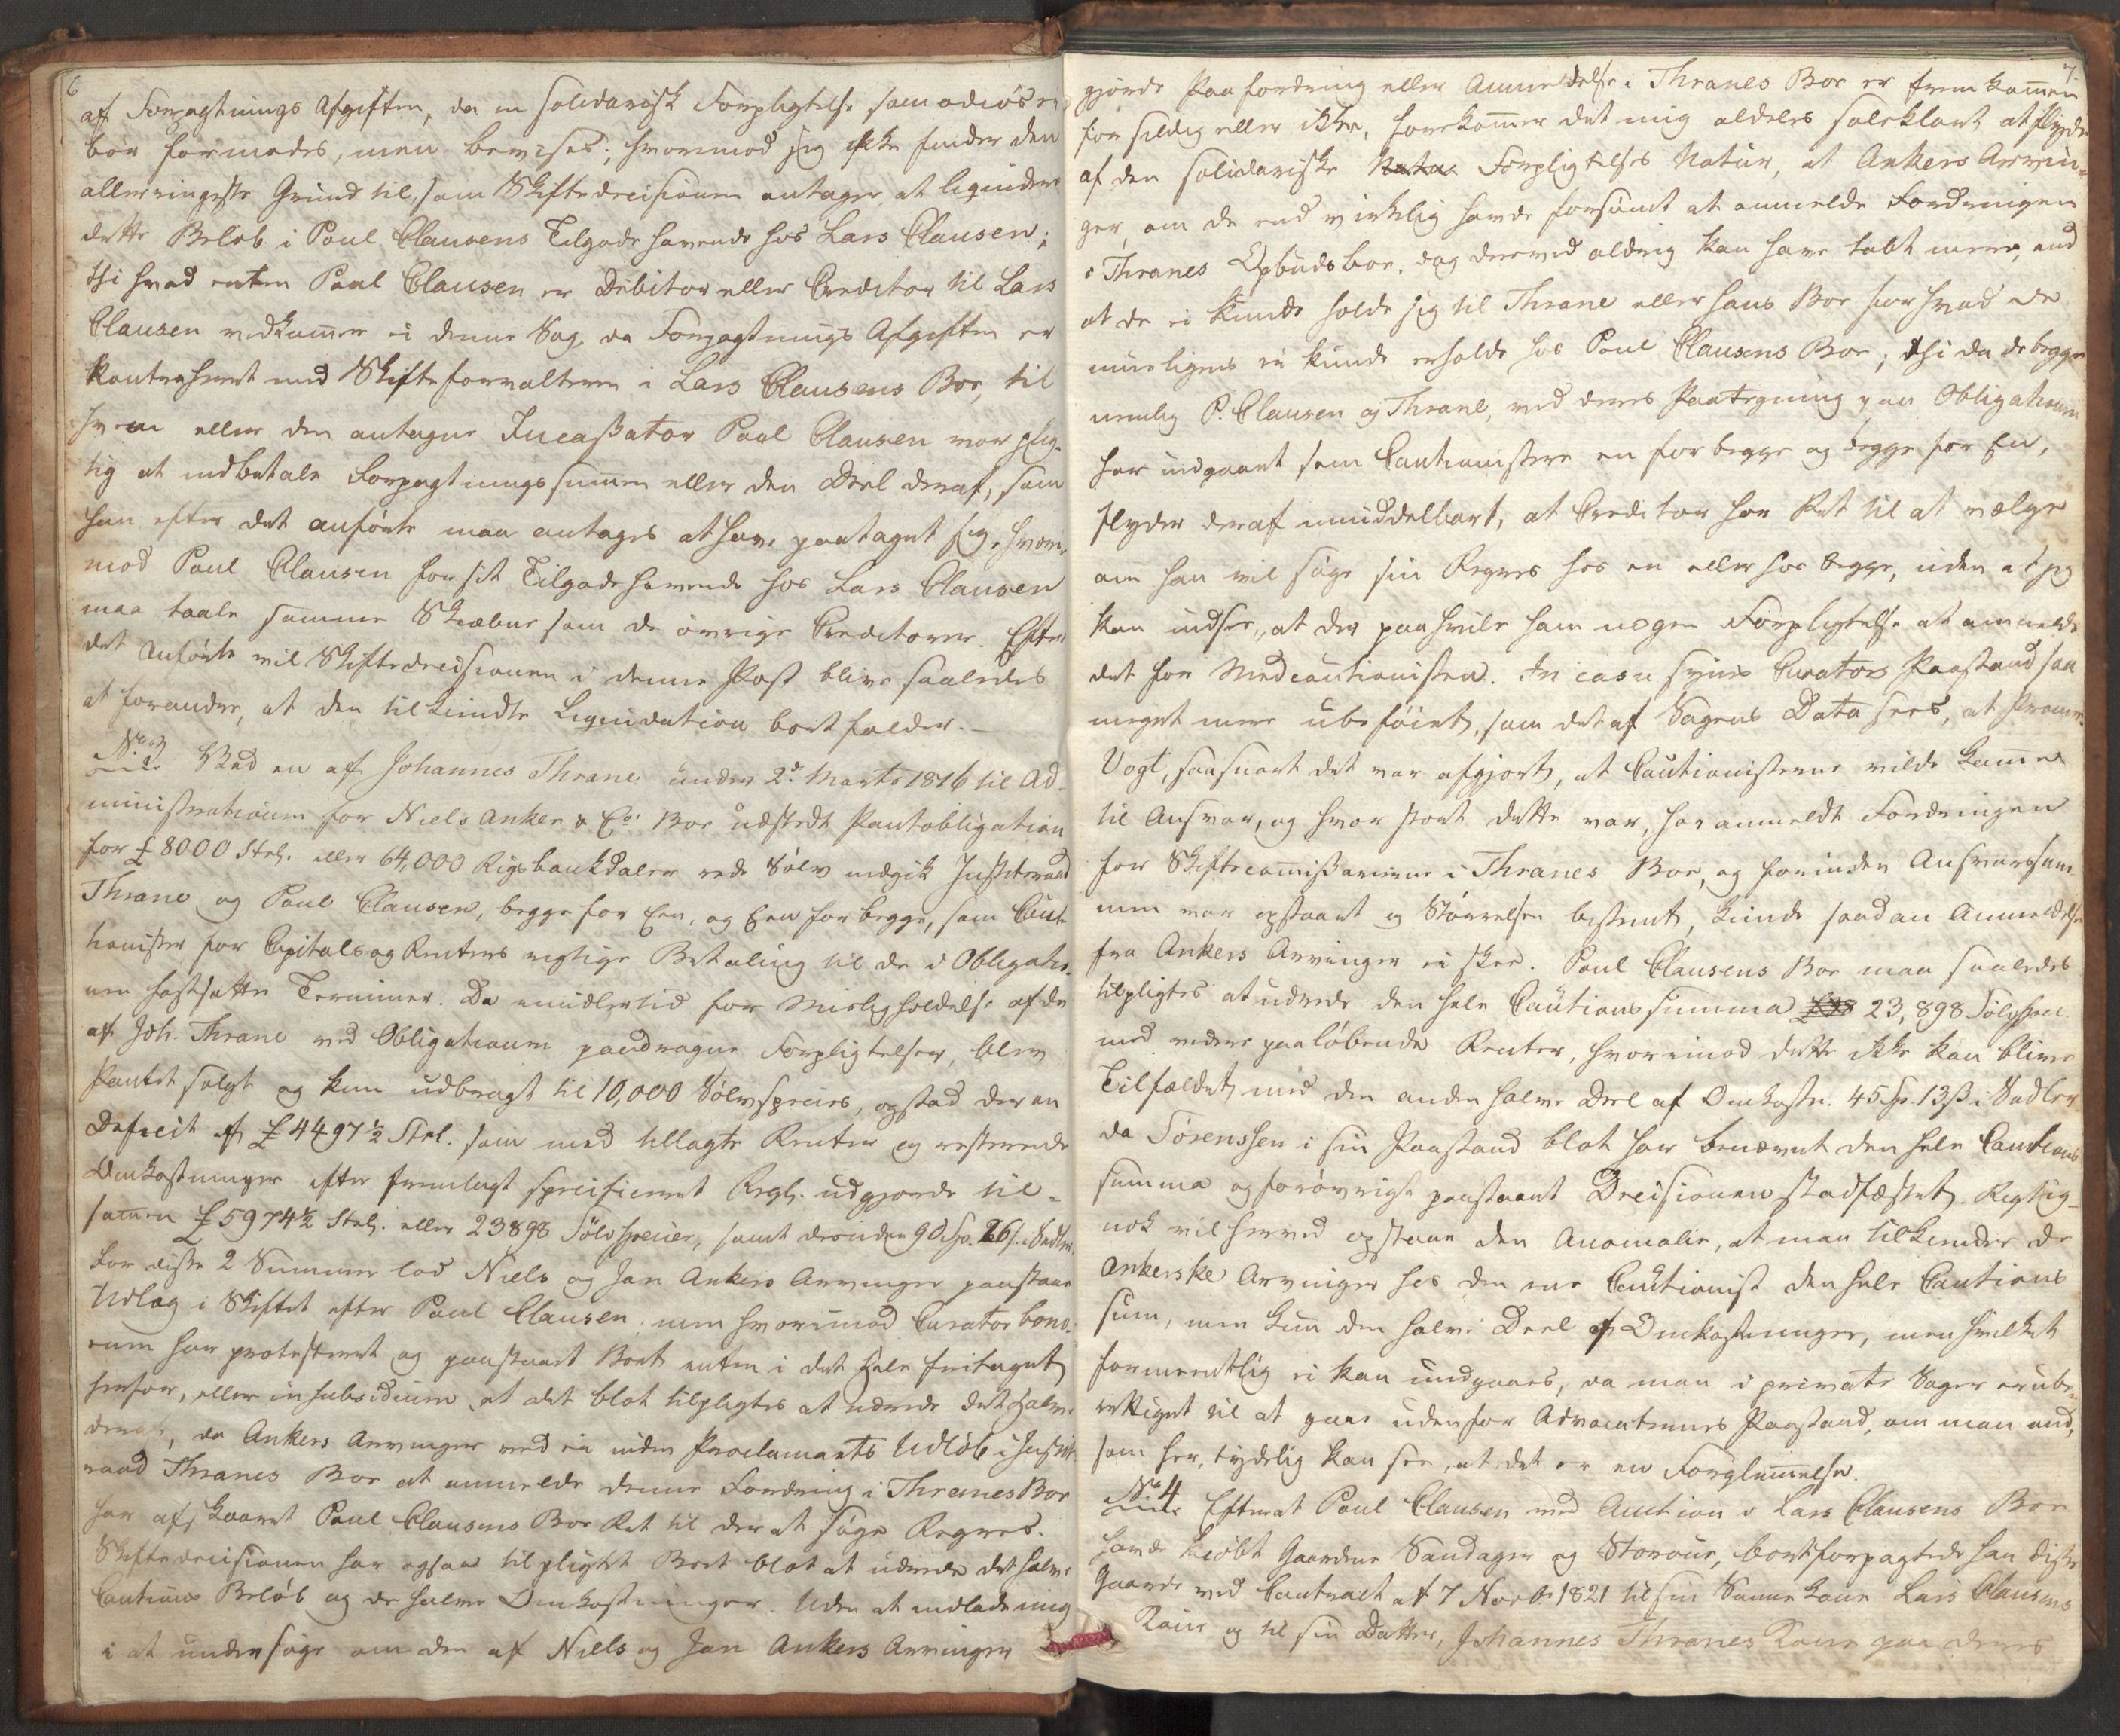 6
af Forpagtnings Afgiften, da en solidarisk Forpligtelse som odiøs ei
bør formodes, men bevises; hvorimod jeg ikke finder den
allerringeste Grund til, som Skiftedecisionen antager, at liqvidere
dette Beløb i Poul Clausens Tilgodehavende hos Lars Clausen;
thi hvad enten Poul Clausen er Debitor eller Creditor til Lars
Clausen vedkom̄er ei denne Sag, da Forpagtnings Afgiften er
kontraheret med Skifteforvalteren i Lars Clausens Boe, til
hvem eller den antagne Incassator Poul Clausen var plig-
tig at indbetale Forpagtningssum̄en eller den Deel deraf, som
han efter det anførte maa antages at have paataget sig, hvori-
mod Poul Clausen for sit Tilgodehavende hos Lars Clausen
maa taale samme Skiæbne som de øvrige Creditorer. Efter
det Anførte vil Skiftedecisionen i denne Post blive saaledes
at forandre, at den tilkiendte Liqvidation bortfalder.-
No 3
Ved en af Johannes Thrane under 2d Marts 1816 til Ad-
ministrationen for Niels Anker & Co: Boe udstedt Pantobligation
for £ 8000 Strl. eller 64,000 Rigsbankdaler rede Sølv indgik Justitsraad
Thrane og Poul Clausen, begge for Een, og Een for begge, som Caut-
ionister for Capitals og Renters rigtige Betaling til de i Obligatio-
nen fastsatte Terminer. Da imidlertid for Misligholdelse af de
af Joh. Thrane ved Obligationen paadragne Forpligtelser, blev
Pantet solgt og kun udbragt til 10,000 Sølvspecies, opstod der en
Deficit af £ 4497½ Strl. som med tillagte Renter og resterende
Omkostninger efter fremlagt specificeret Regn. udgjorde til-
sam̄en £ 5974½ Strl. eller 23898 Sølvspecier, samt desuden 90 Sp. 26 s. i Sedler.
For disse 2 Summer lod Niels og Jan Ankers Arvinger paastaae
Udlæg i Skiftet efter Poul Clausen, men hvorimod Curator bono-
rum har protesteret og paastaaet Boet enten i det Hele fritaget
herfor, eller in subsidium, at det blot tilpligtes at udrede det halve
deraf, da Ankers Arvinger ved ei inden Proclamaets Udløb i Justits-
raad Thranes Boe at anmelde denne Fordring i Thranes Boe
har afskaaret Poul Clausens Boe Ret til der at søge Regres.
Skiftedecisionen har ogsaa tilpligtet Boet blot at udrede det halve
Cautions Beløb og de halve Omkostninger. Uden at indlade mig
i at undersøge om den af Niels og Jan Ankers Arvinger
7.
gjorde Paafordring eller Anmeldelse i Thranes Boe er fremkom̄en
for sildig eller ikke, forekom̄er det mig aldeles soleklart at flyde
af den solidariske Forpligtelses Natur, at Ankers Arvin-
ger, om de end virkelig havde forsømt at anmelde Fordringen
i Thranes Opbudsboe, dog derved aldrig kan have tabt mere, end
at de ei kunde holde sig til Thrane eller hans Boe for hvad de
mueligens ei kunde erholde hos Poul Clausens Boe; thi da de begge
nemlig P. Clausen og Thrane, ved deres Paategning paa Obligationen
har indgaaet som Cautionister en for begge og begge for En,
flyder deraf umiddelbart, at Creditor har Ret til at vælge
om han vil søge sin Regres hos en eller hos begge, uden at jeg
kan indsee, at der paahviler ham nogen Forpligtelse at anmelde
det for Medcautionisten. In casu synes Curators Paastand saa
meget mere ubeføiet, som det af Sagens Data sees, at Procur.
Vogt, saasnart det var afgjort, at Cautionisterne vilde kom̄e
til Ansvar, og hvor stort dette var, har anmeldt Fordringen
for Skiftecom̄issarierne i Thranes Boe, og forinden Ansvarssum-
men var opstaaet og Størrelsen bestemt, kunde saadan Anmeldelse
fra Ankers Arvinger ei skee. Poul Clausens Boe maa saaledes
tilpligtes at udrede den hele Cautionssumma 23,898 Sølvspec.
med videre paaløbende Renter, hvorimod dette ikke kan blive
Tilfældet med den anden halve Deel af Omkostn. 45 Sp. 13 ß i Sedler
da Sørenssen i sin Paastand blot har benævnt den hele Cautions
summa og forøvrigt paastaaet Decisionen stadfæstet. Rigtig-
nok vil herved opstaae den Anomalie, at man tilkiender de
Ankerske Arvinger hos den ene Cautionist den hele Cautions
sum, men kun den halve Deel af Omkostninger, men hvilket
formeentlig ei kan undgaaes, da man i private Sager er ube-
rettiget til at gaae udenfor Advocaternes Paastand, om man end,
som her, tydelig kan see, at det er en Forglem̄else.
No 4
Efterat Poul Clausen ved Auction i Lars Clausens Boe
havde kiøbt Gaardene Sandager og Storøue, bortforpagtede han disse
Gaarde ved Contract af 7 Novbr 1821 til sin Lars Clausens
Kone og til sin Datter, Johannes Thranes Kone paa deres